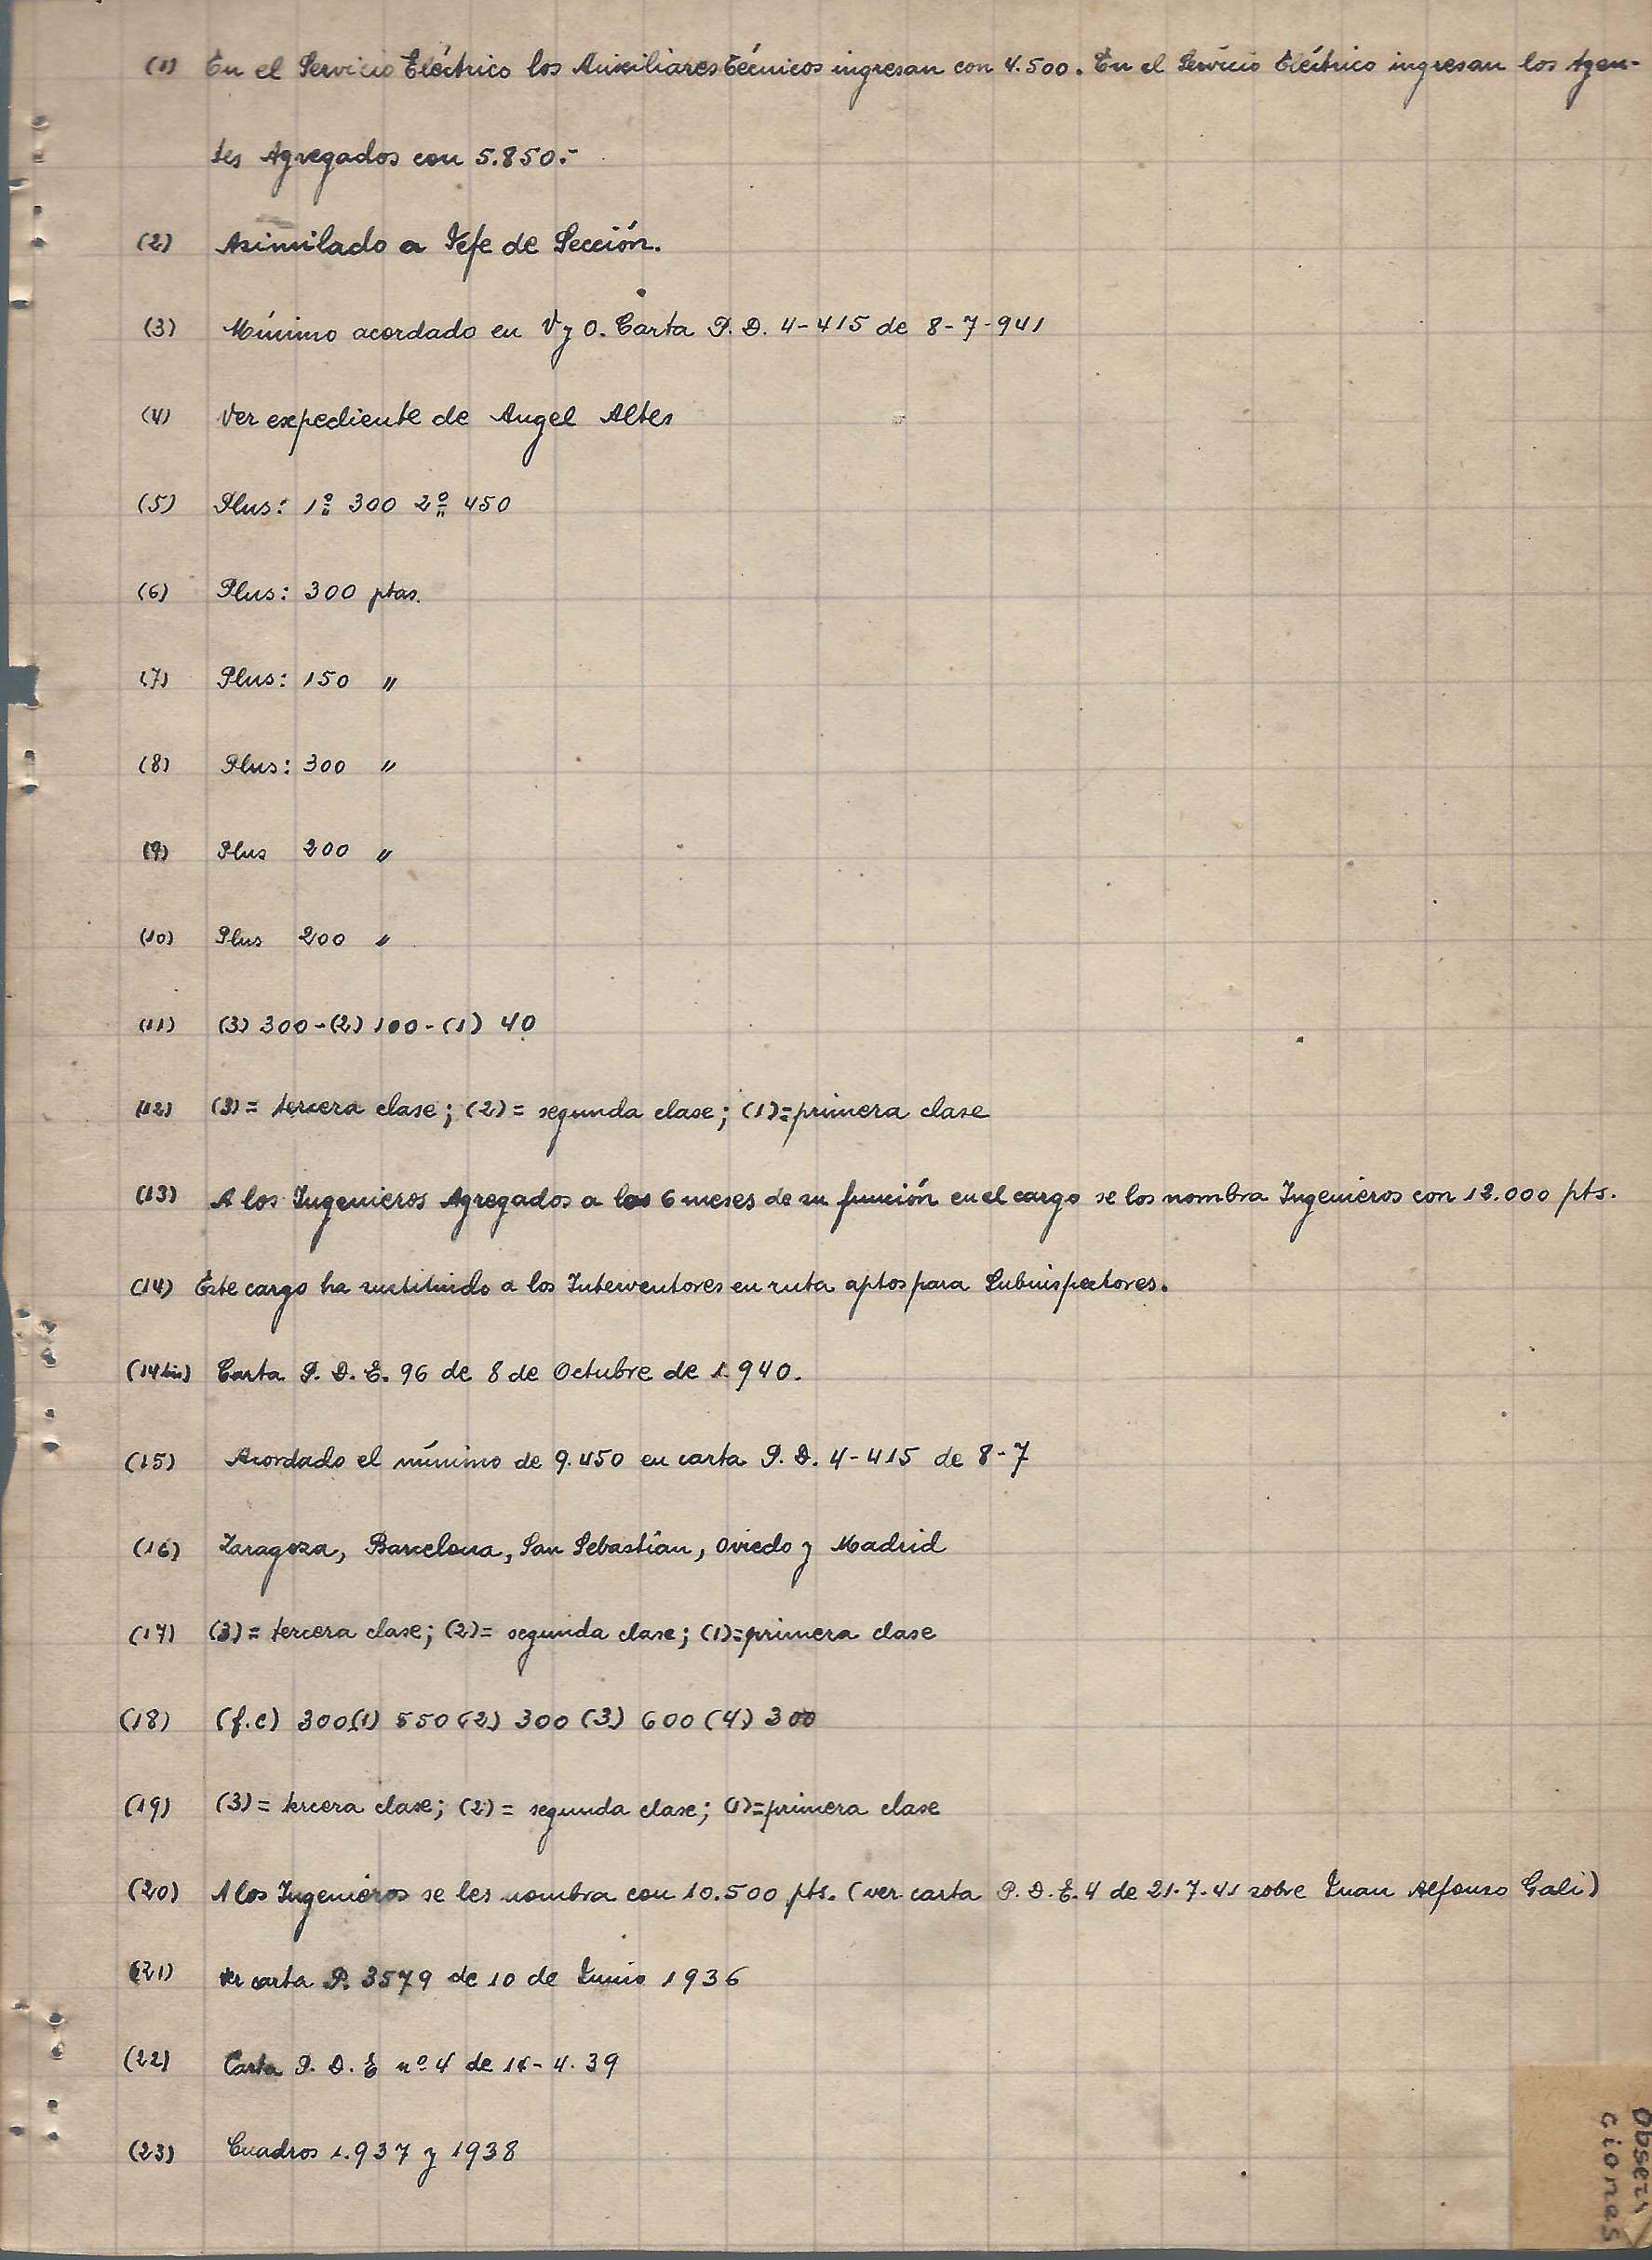 (1) En el Servicio Eléctrico los Auxiliares técnicos ingresan con 4.500. En el Servicio Eléctrico ingresan los Agen-
tes Agregados con 5.850.-
(2) Asimilado a Jefe de Sección.
(3) Mínimo acordado en V y O. Carta P. D. 4-415 de 8-7-941
(4) Ver expediente de Angel Altes
(5) Plus: 1º 300 2º 450
(6) Plus: 300 ptas.
(7) Plus: 150 "
(8) Plus: 300 "
(9) Plus 200 "
(10) Plus 200 "
(11) (3) 300-(2) 100-(1) 40
(12) (3)= tercera clase; (2)= segunda clase; (1)=primera clase
(13) A los Ingenieros Agregados a los 6 meses de su función en el cargo se los nombra Ingenieros con 12.000 pts.
(14) Este cargo ha sustituido a los Interventores en ruta aptos para Subinspectores.
(14 bis) Carta P. D. E. 96 de 8 de Octubre de 1.940.
(15) Acordado el mínimo de 9.450 en carta P. D. 4-415 de 8-7
(16) Zaragoza, Barcelona, San Sebastián, Oviedo y Madrid
(17) (3)= tercera clase; (2)= segunda clase; (1)=primera clase
(18) (f.c) 300(1) 550 (2) 300 (3) 600 (4) 300
(19) (3)= tercera clase; (2)= segunda clase; (1)=primera clase
(20) A los Ingenieros se les nombra con 10.500 pts. (ver carta P. D. E. 4 de 21-7-41 sobre Juan Alfonso Gali)
(21) Ver carta P. 3579 de 10 de Junio 1936
(22) Carta P. D. E nº 4 de 4. 39
(23) Cuadros 1.937 y 1938
Observa
ciones